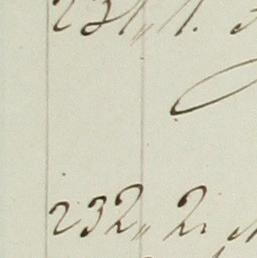 231,, 1.
232,, 2.